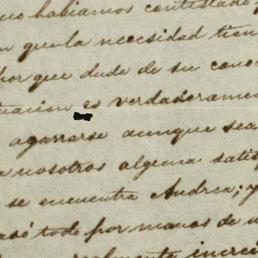 que habiamos contestado
n que la necesidad tien
por que dude de su cono
tuacion es verdaderamen
agarrarse aunque sea
a nosotros alguna satis
se encuentra Andrea; y
asó todo por manos de u
realmente increi